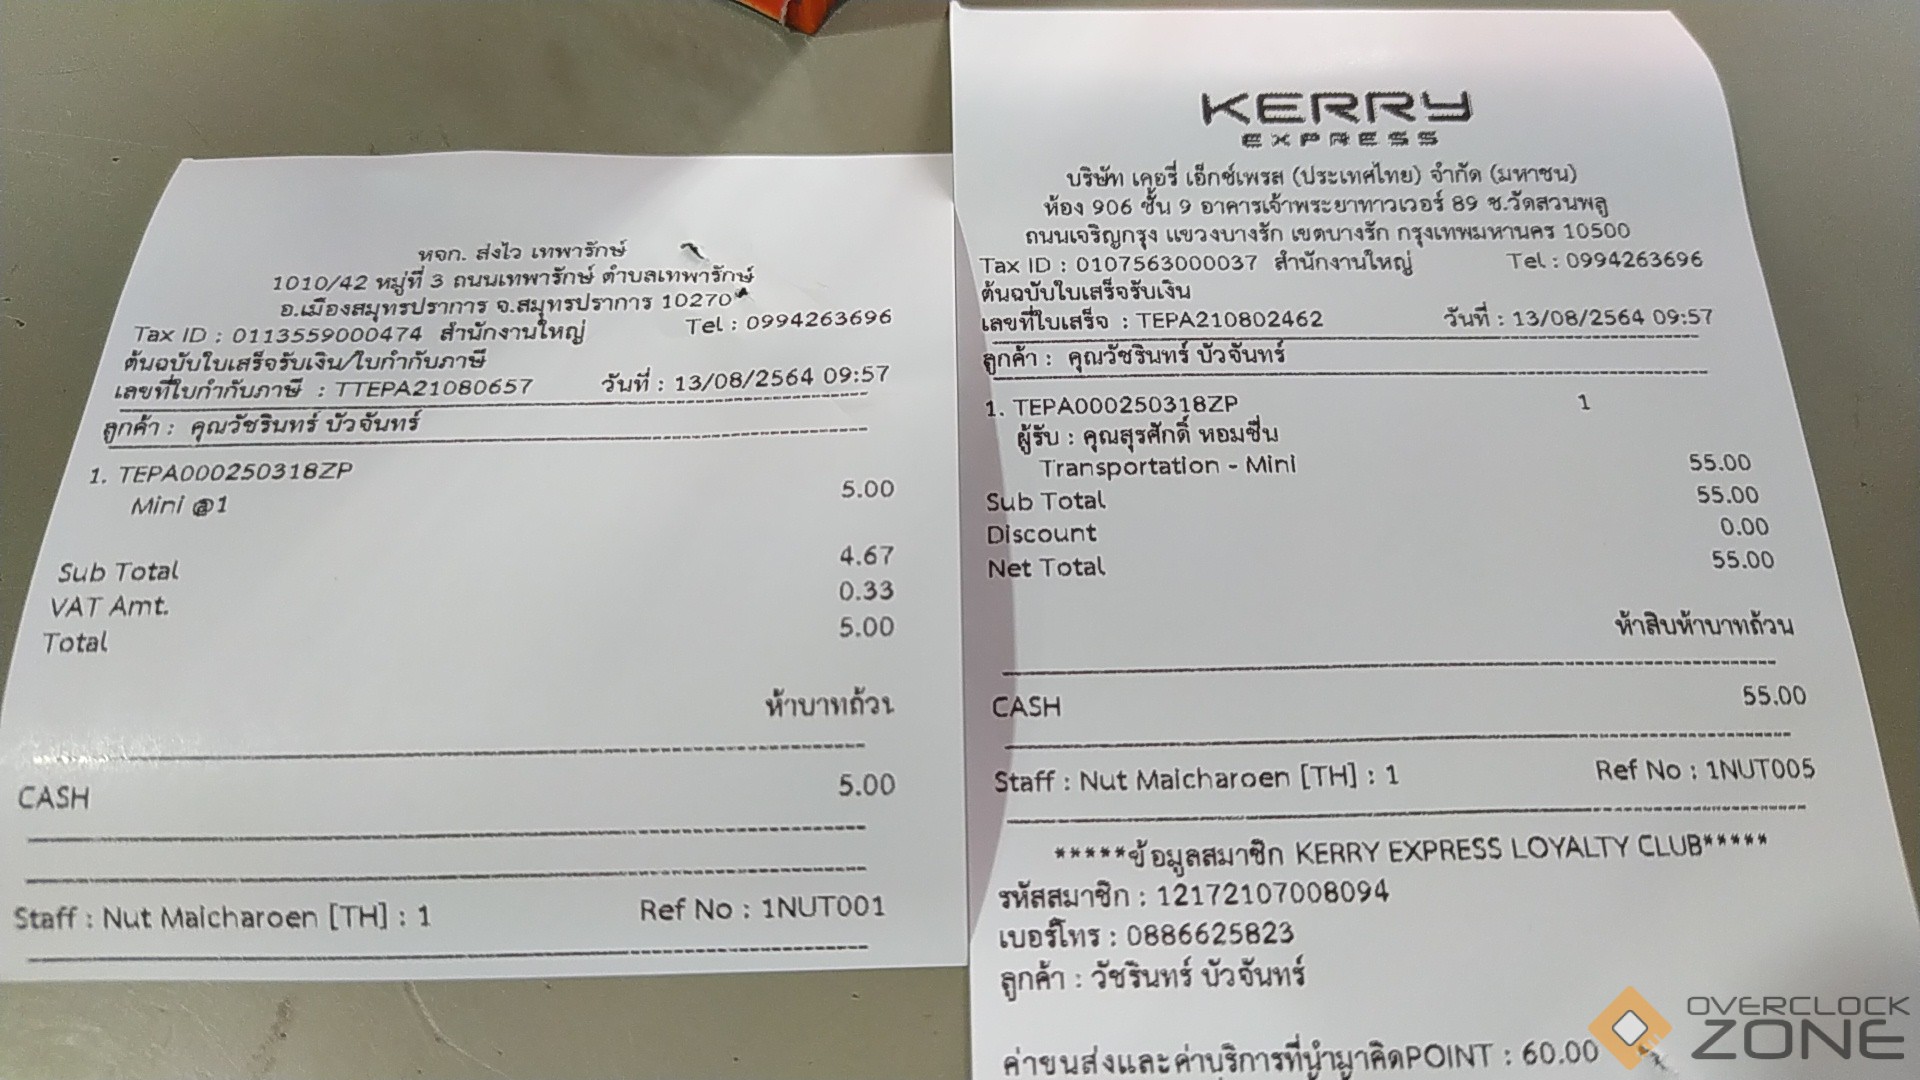 หจก. ส่งไว เทพารักษ์
1010/42 หมู่ที่ 3 ถนนเทพารักษ์ ตำบลเทพารักษ์
อ.เมืองสมุทรปราการ จ.สมุทรปราการ 10270
Tax ID : 0113559000474 สำนักงานใหญ่ Tel : 0994263696
ต้นฉบับใบเสร็จรับเงิน/ใบกำกับภาษี
เลขที่ใบกำกับภาษี : TTEPA21080657 วันที่ : 13/08/2564 09:57
ลูกค้า : คุณวัชรินทร์ บัวจันทร์
1. TEPA000250318ZP
Mini @1 5.00
Sub Total 4.67
VAT Amt. 0.33
Total 5.00
ห้าบาทถ้วน
CASH 5.00
Staff : Nut Maicharoen [TH] : 1 Ref No : 1NUT001
KERRY
EXPRESS
บริษัท เคอรี่ เอ็กซ์เพรส (ประเทศไทย) จำกัด (มหาชน)
ห้อง 906 ชั้น 9 อาคารเจ้าพระยาทาวเวอร์ 89 ซ.วัดสวนพลู
ถนนเจริญกรุง แขวงบางรัก เขตบางรัก กรุงเทพมหานคร 10500
Tax ID : 0107563000037 สำนักงานใหญ่ Tel : 0994263696
ต้นฉบับใบเสร็จรับเงิน
เลขที่ใบเสร็จ : TEPA210802462 วันที่ : 13/08/2564 09:57
ลูกค้า : คุณวัชรินทร์ บัวจันทร์
1. TEPA000250318ZP 1
ผู้รับ : คุณสุรศักดิ์ หอมชื่น
Transportation - Mini 55.00
Sub Total 55.00
Discount 0.00
Net Total 55.00
ห้าสิบห้าบาทถ้วน
CASH 55.00
Staff : Nut Maicharoen [TH] : 1 Ref No : 1NUT005
*****ข้อมูลสมาชิก KERRY EXPRESS LOYALTY CLUB*****
รหัสสมาชิก : 12172107008094
เบอร์โทร : 0886625823
ลูกค้า : วัชรินทร์ บัวจันทร์
ค่าขนส่งและค่าบริการที่นำมาคิดPOINT : 60.00
OVERCLOCK
ZONE